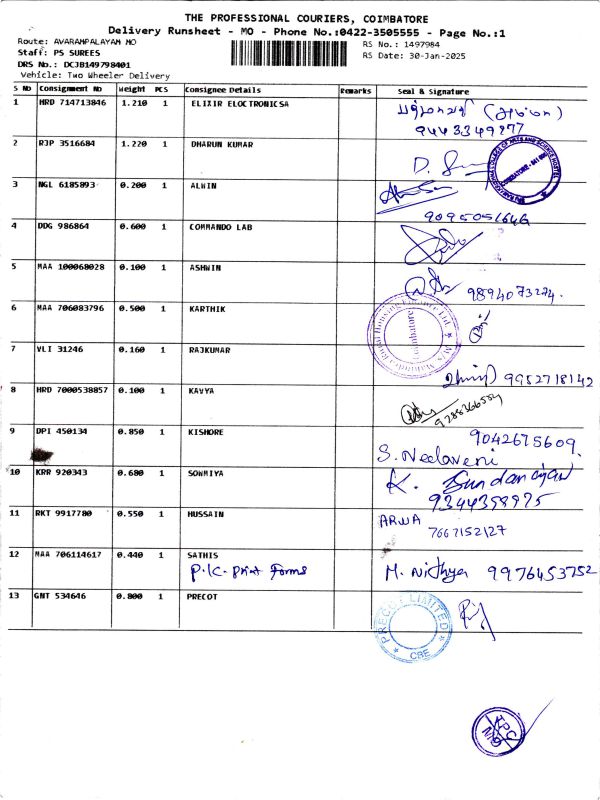 THE PROFESSIONAL COURIERS, COIMBATORE
Delivery Runsheet - MO - Phone No.:0422-3505555 - Page No.:1
Route: AVARAMPALAYAM MO
Staff: PS SUREES
DRS No.: DCJB149798401
Vehicle: Two Wheeler Delivery
RS No.: 1497984
RS Date: 30-Jan-2025
S No Consignment No Weight PCS Consignee Details Remarks Seal & Signature
1 HRD 714713846 1.210 1 ELIXIR ELOCTRONICSA
9443349877
2 RJP 3516684 1.220 1 DHARUN KUMAR
3 NGL 6185893 0.200 1 ALWIN
9095051646
4 DDG 986864 0.600 1 COMMANDO LAB
5 MAA 100068028 0.100 1 ASHWIN
9894073274.
6 MAA 706083796 0.500 1 KARTHIK
7 VLI 31246 0.160 1 RAJKUMAR
9952718142
8 HRD 7000538857 0.100 1 KAVYA
9 DPI 450134 0.850 1 KISHORE 9042675609.
S. Neelaveni
10 KRR 920343 0.680 1 SOWMIYA K.
9344398975
11 RKT 9917780 0.550 1 HUSSAIN ARWA
7667152127
12 MAA 706114617 0.440 1 SATHIS
P.K. Print Forms M. Nithya 9976453752
13 GNT 534646 0.800 1 PRECOT
PRECOT LIMITED
CBE